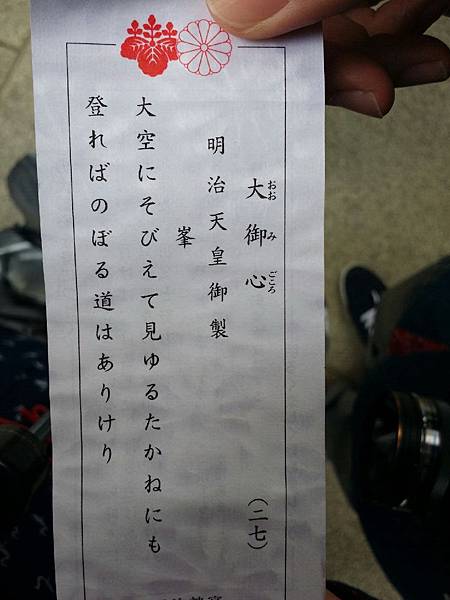 大御心 (二七)
おおみごころ
明治天皇御製
峯
大空にそびえて見ゆるたかねにも
登ればのぼる道はありけり